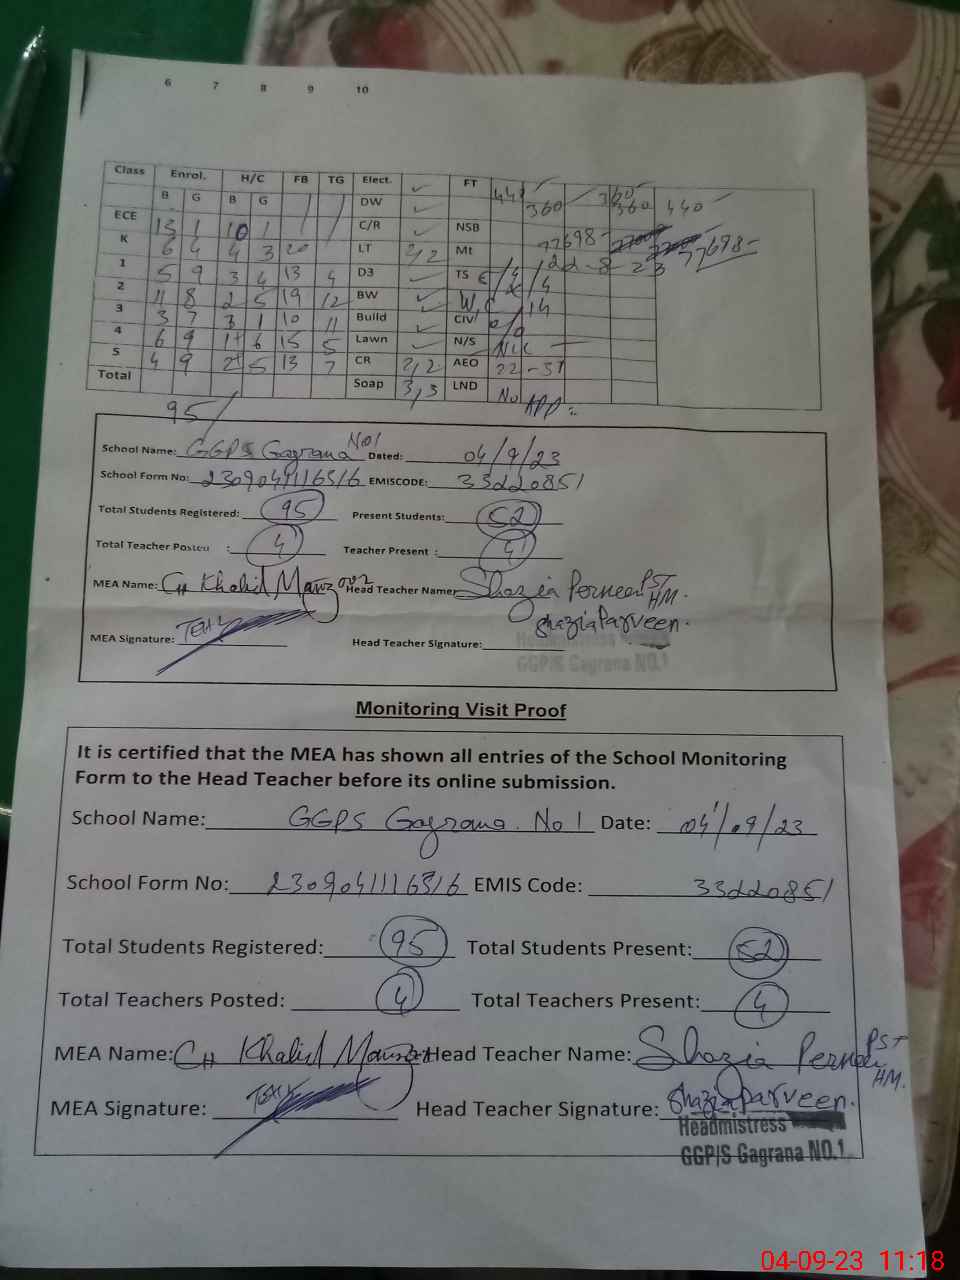 6 7 8 9 10
Class Enrol. H/C FB TG Elect. ✓ FT
B G B G DW ✓ 360 360 440
ECE 13 1 10 1 C/R ✓ NSB
K 6 4 4 3 20 LT 2,2 Mt 77698-
1 5 9 3 4 13 4 D3 TS 22-8-23
2 11 8 2 5 19 12 BW ✓ W.C 14
3 3 7 3 1 10 11 Build ✓ CIV
4 6 9 1+ 6 15 5 Lawn ✓ N/S NCC
5 4 9 2+ 5 13 7 CR 2,2 AEO 22-31
Total Soap 3,3 LND No APP:
95/
School Name: GGPS Gagrana No1 Dated: 04/9/23
School Form No: 2309041116316 EMISCODE: 33220851
Total Students Registered: 95 Present Students: 52
Total Teacher Posted : 4 Teacher Present : 4
MEA Name: CH Khalid Manzoor Head Teacher Name: Shazia Perneen PST HM.
MEA Signature: Head Teacher Signature: ShaziaParveen.
Headmistress
GGP/S Gagrana NO.1
Monitoring Visit Proof
It is certified that the MEA has shown all entries of the School Monitoring
Form to the Head Teacher before its online submission.
School Name: GGPS Gagrana No 1 Date: 04/09/23
School Form No: 23090411116316 EMIS Code: 33220851
Total Students Registered: 95 Total Students Present: 52
Total Teachers Posted: 4 Total Teachers Present: 4
MEA Name: CH Khalid Manzoor Head Teacher Name: Shazia Perneen PST HM.
MEA Signature: Head Teacher Signature: ShaziaParveen.
Headmistress
GGP/S Gagrana NO.1
04-09-23 11:18